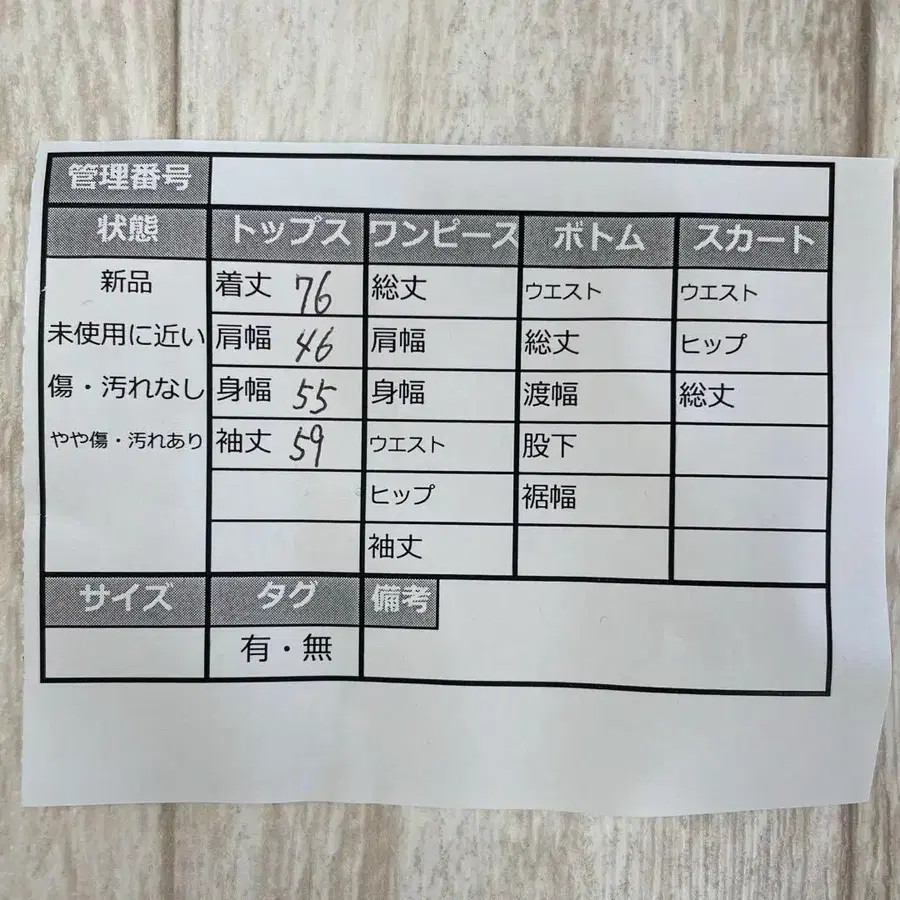 管理番号
状態 トップス ワンピース ボトム スカート
新品 着丈 76 総丈 ウエスト ウエスト
未使用に近い 肩幅 46 肩幅 総丈 ヒップ
傷・汚れなし 身幅 55 身幅 渡幅 総丈
やや傷・汚れあり 袖丈 59 ウエスト 股下
ヒップ 裾幅
袖丈
サイズ タグ 備考
有・無